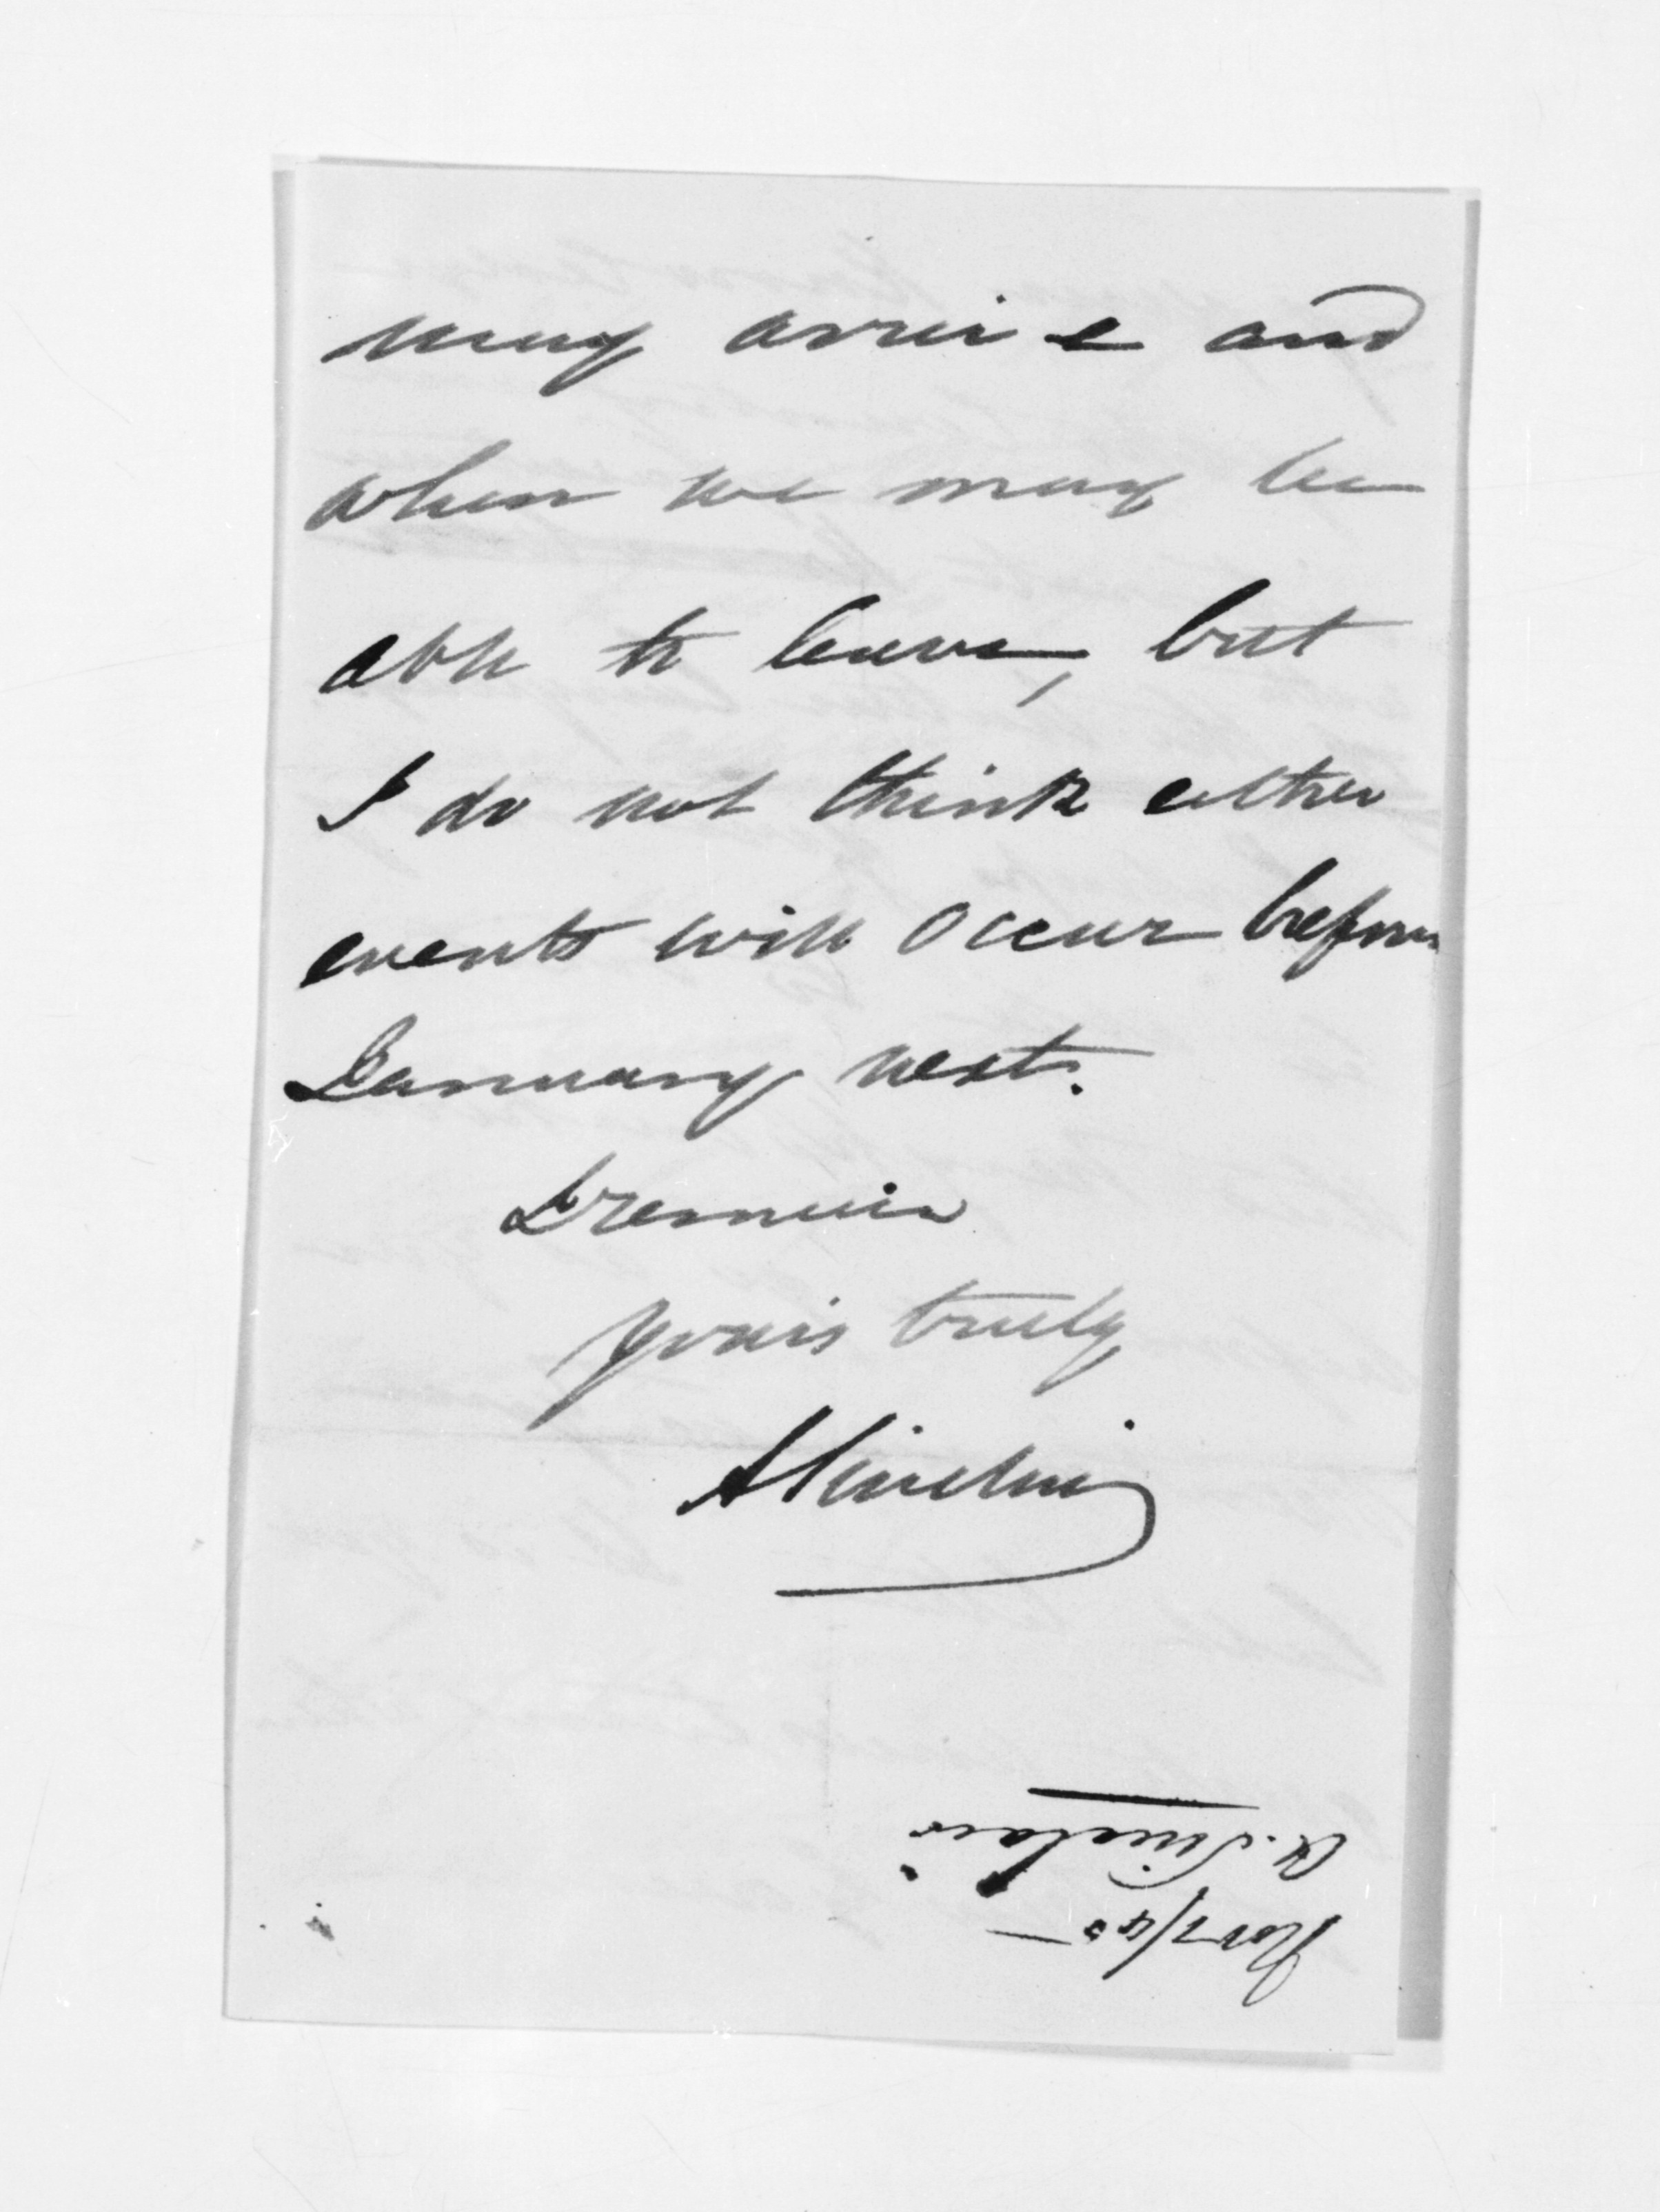 may arrive and
when we may be
able to leave, but
I do not think either
events will occur before
January next.
I remain
yours truly
A Sinclair
A. Sinclair